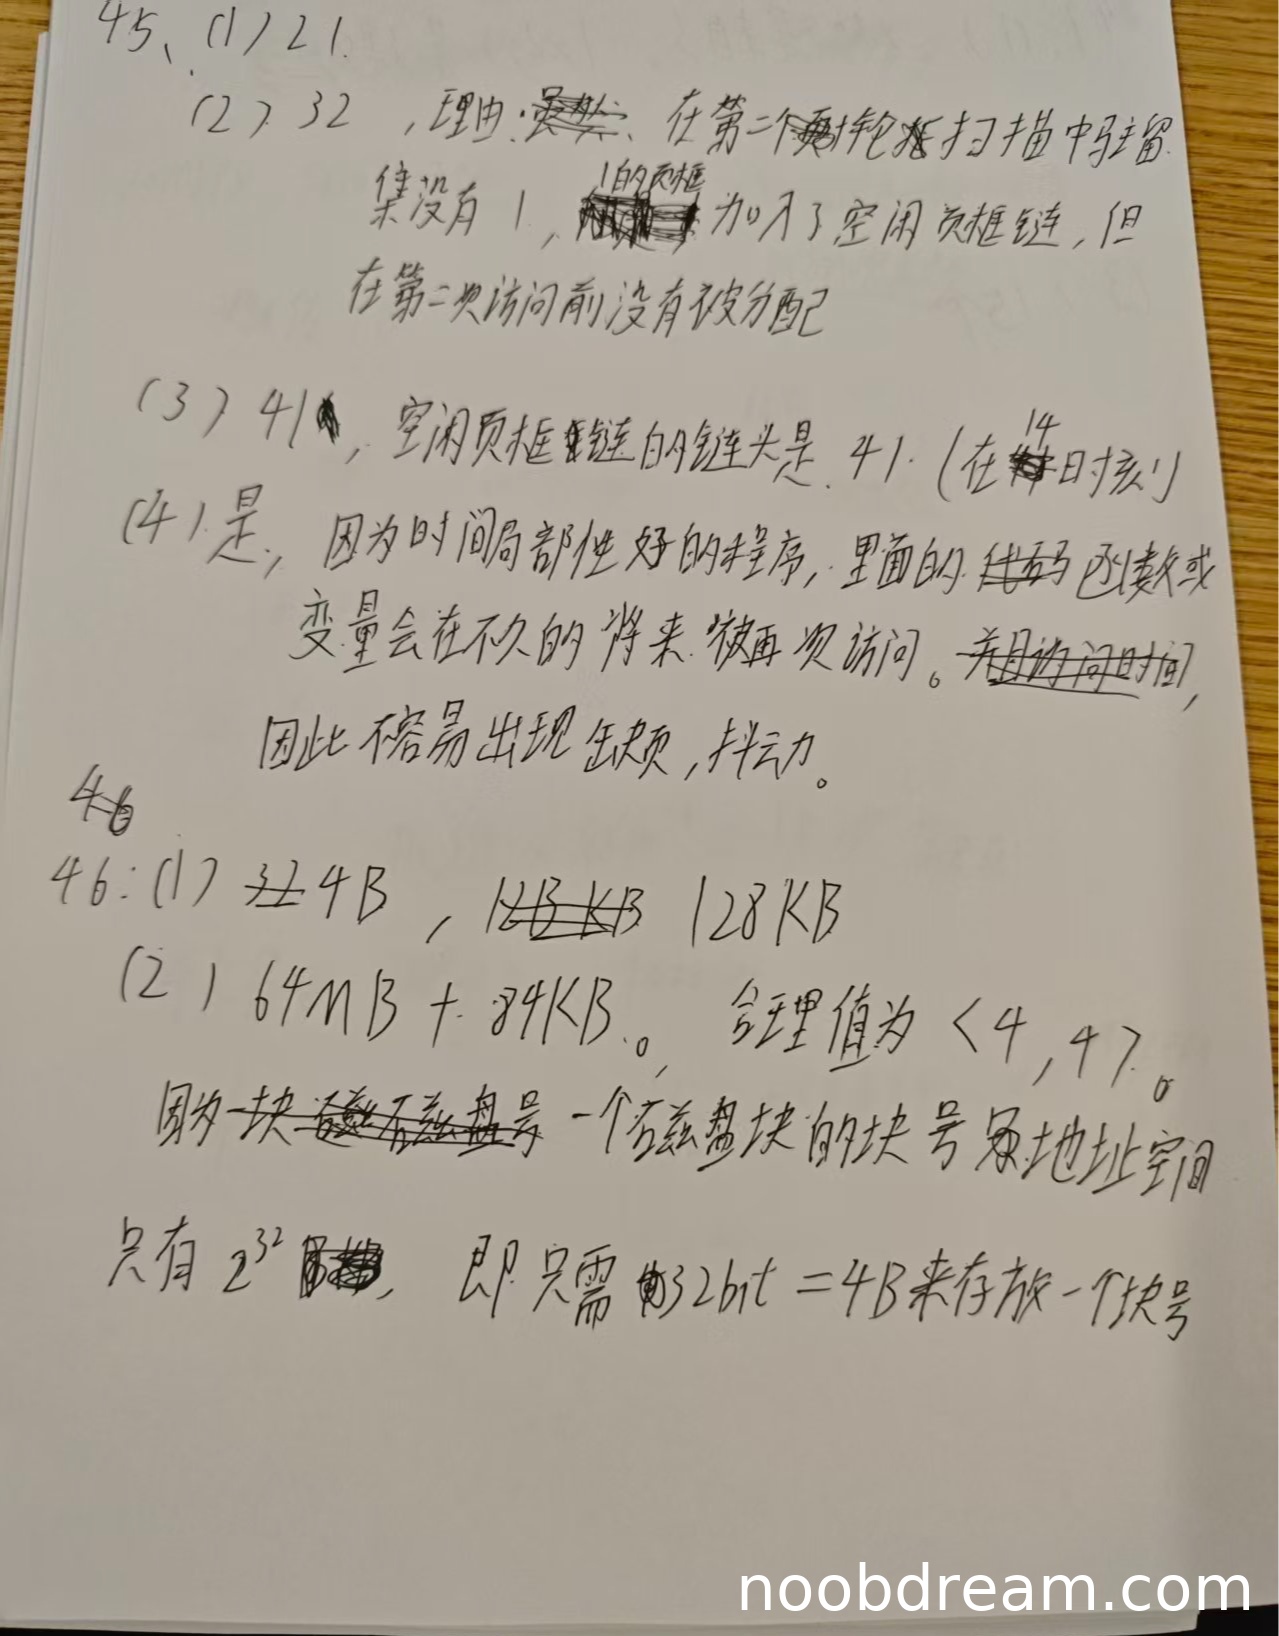 45、(1) 21.
(2). 32 ,理由: 在第二轮扫描中驻留
集没有 1, 1的页框 加入了空闲页框链,但
在第二次访问前没有被分配
(3) 41, 空闲页框链的链头是.41. (在14时刻)
(4).是, 因为时间局部性好的程序,里面的函数或
变量会在不久的将来被再次访问。
因此不容易出现缺页,抖动。
46:(1) 4B , 128KB
(2) 64MB + 84KB。, 合理值为 <4,4>。
因为一个磁盘块的块号地址空间
只有 2^32, 即只需32bit=4B来存放一个块号
noobdream.com